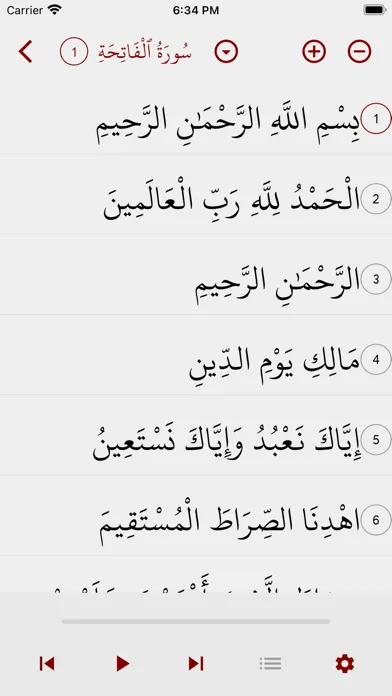 Carrier 6:34 PM
1 سُورَةُ ٱلْفَاتِحَةِ
1 بِسْمِ اللَّهِ الرَّحْمَٰنِ الرَّحِيمِ
2 الْحَمْدُ لِلَّهِ رَبِّ الْعَالَمِينَ
3 الرَّحْمَٰنِ الرَّحِيمِ
4 مَالِكِ يَوْمِ الدِّينِ
5 إِيَّاكَ نَعْبُدُ وَإِيَّاكَ نَسْتَعِينُ
6 اهْدِنَا الصِّرَاطَ الْمُسْتَقِيمَ